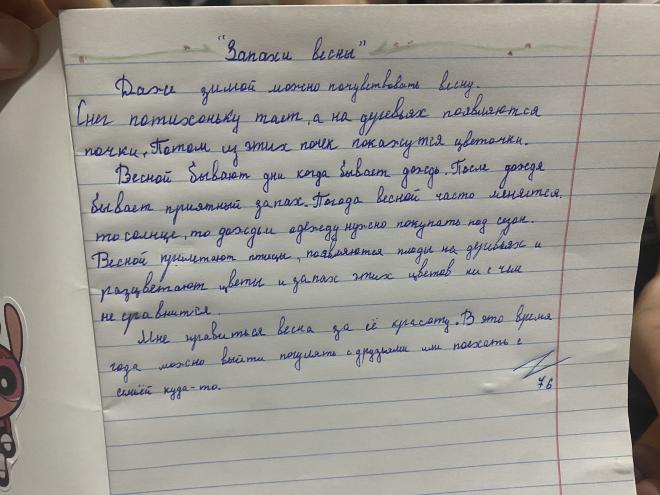 "Запахи весны"
Даже зимой можно почувствовать весну.
Снег потихоньку тает, а на деревьях появляются
почки. Потом из этих почек покажутся цветочки.
Весной бывают дни когда бывает дождь. После дождя
бывает приятный запах. Погода весной часто меняется.
то солнце, то дождь и одежду нужно покупать под сезон.
Весной прилетают птицы, появляются плоды на деревьях и
разцветают цветы и запах этих цветов ни с чем
не сравнится.
Мне нравиться весна за её красоту. В это время
года можно выйти погулять с друзьями или поехать с
семьёй куда-то.
7б